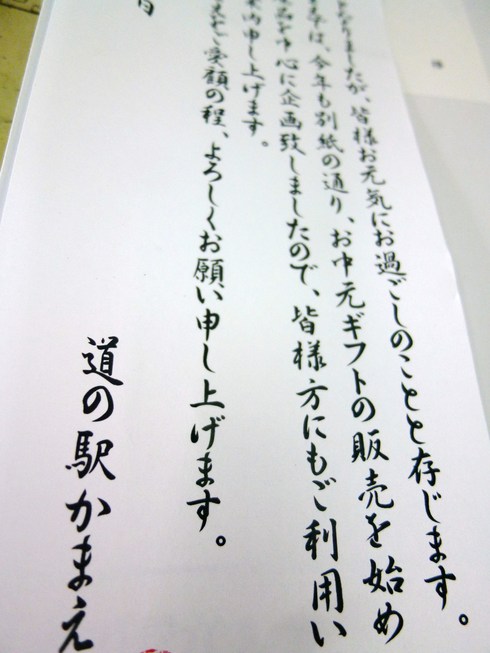 なりましたが、皆様お元気にお過ごしのことと存じます。
は、今年も別紙の通り、お中元ギフトの販売を始め
中心に企画致しましたので、皆様方にもご利用い
案内申し上げます。
ご愛顧の程、よろしくお願い申し上げます。
道の駅かまえ
様